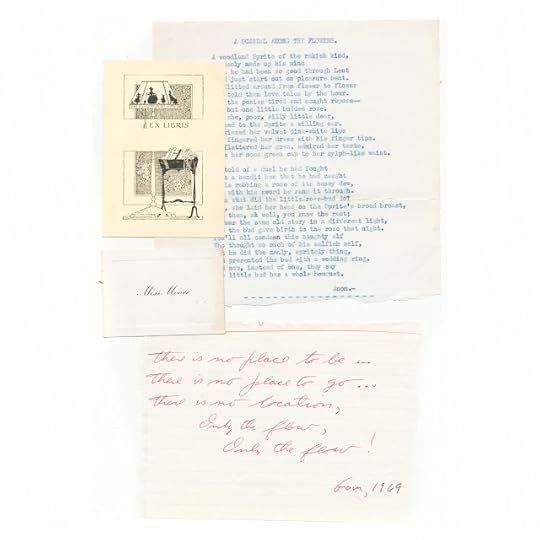 A SCANDAL AMONG THE FLOWERS.
A woodland Sprite of the rakish kind,
made up his mind
he had been so good through Lent
just start out on pleasure bent.
flitted around from flower to flower
told them love tales by the hour.
the posies tired and sought repose--
but one little budded rose.
she, poor, silly little dear,
to the Sprite a willing ear.
her velvet pink-white lips
fingered her dress with his finger tips.
flattered her gown, admired her taste,
her moss green cup to her sylph-like waist.
told of a duel he had fought
a bandit bee that he had caught
robbing a rose of its honey dew,
with his sword he rank it through.
what did the little rose-bud do?
she laid her head on the Sprite's broad breast,
then, ah well, you know the rest;
was the same old story in a different light,
the bud gave birth to the rose that night.
You'll all condemn this naughty elf
thought so much of his selfish self,
he did the manly, spritely thing,
presented the bud with a wedding ring.
now, instead of one, they say
little bud has a whole bouquet.
Anon.-
EX LIBRIS
Miss Moore
there is no place to be ...
there is no place to go ...
there is no location,
Only the flow,
Only the flow!
1969